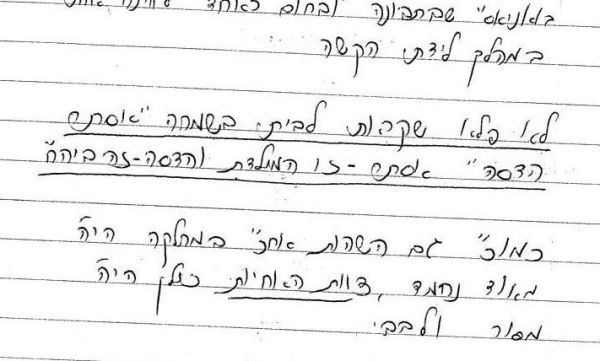 שבתבונה ובחום
במהלך לידתי הקשה
לא פלא שקראתי לביתי בשמחה "אסתר
הדסה" אסתר - זו המילדת והדסה-זה ביה"ח
כמוכ" גם השהות אחכ" במחלקה היה
מאוד נחמד, צוות האחיות כולן היה
מסור ולבבי.